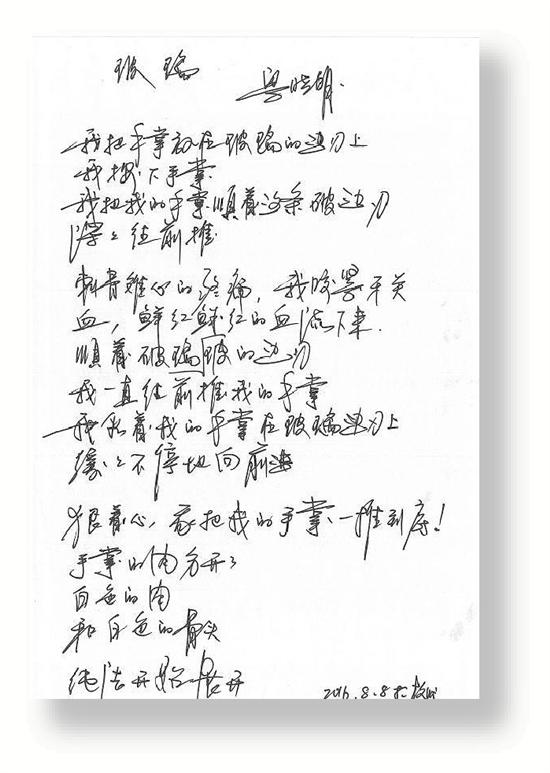 玻璃
梁晓明
我把手掌放在玻璃的边刃上
我按下手掌
我把我的手掌顺着这条破边刃
深深往前推
刺骨锥心的疼痛，我咬紧牙关
血，鲜红鲜红的血流下来
顺着破璃玻的边刃
我一直往前推我的手掌
我看着我的手掌在玻璃边刃上
缓缓不停地向前进
狠着心，我把我的手掌一推到底！
手掌的肉分开了
白色的肉
和白色的骨头
纯洁开始展开
2016.8.8